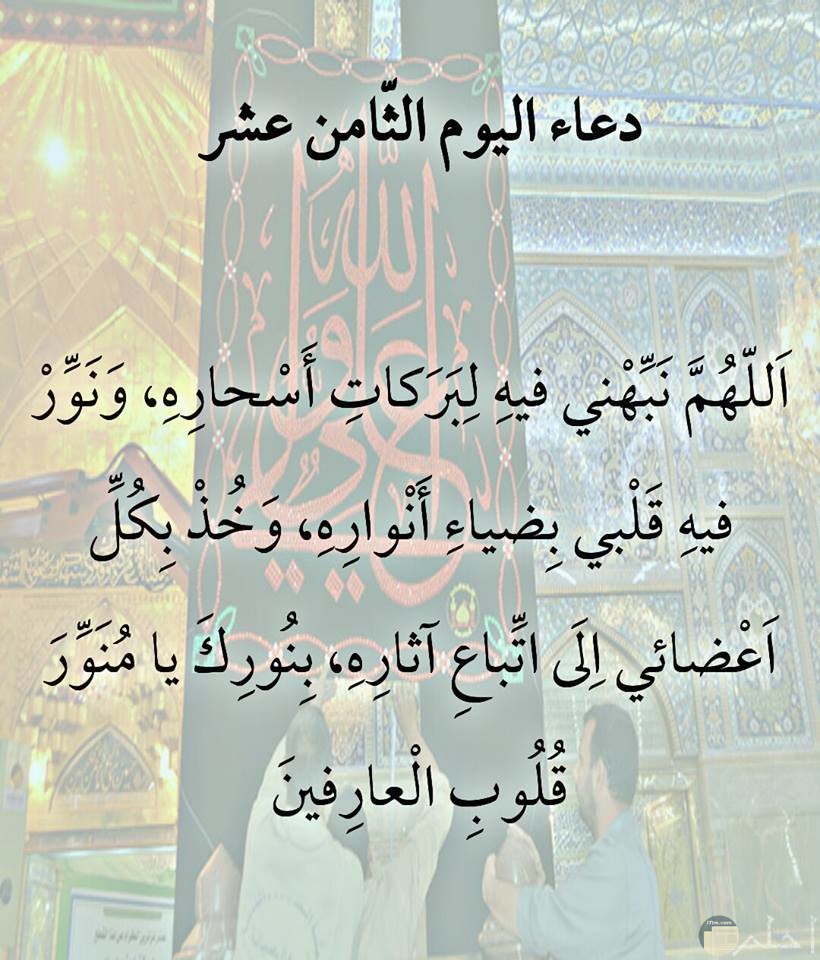 دعاء اليوم الثّامن عشر
اَللّهُمَّ نَبِّهْني فيهِ لِبَرَكاتِ أَسْحارِهِ، وَنَوِّرْ
فيهِ قَلْبي بِضياءِ أَنْوارِهِ، وَخُذْ بِكُلِّ
اَعْضائي اِلَى اتِّباعِ آثارِهِ، بِنُورِكَ يا مُنَوِّرَ
قُلُوبِ الْعارِفينَ